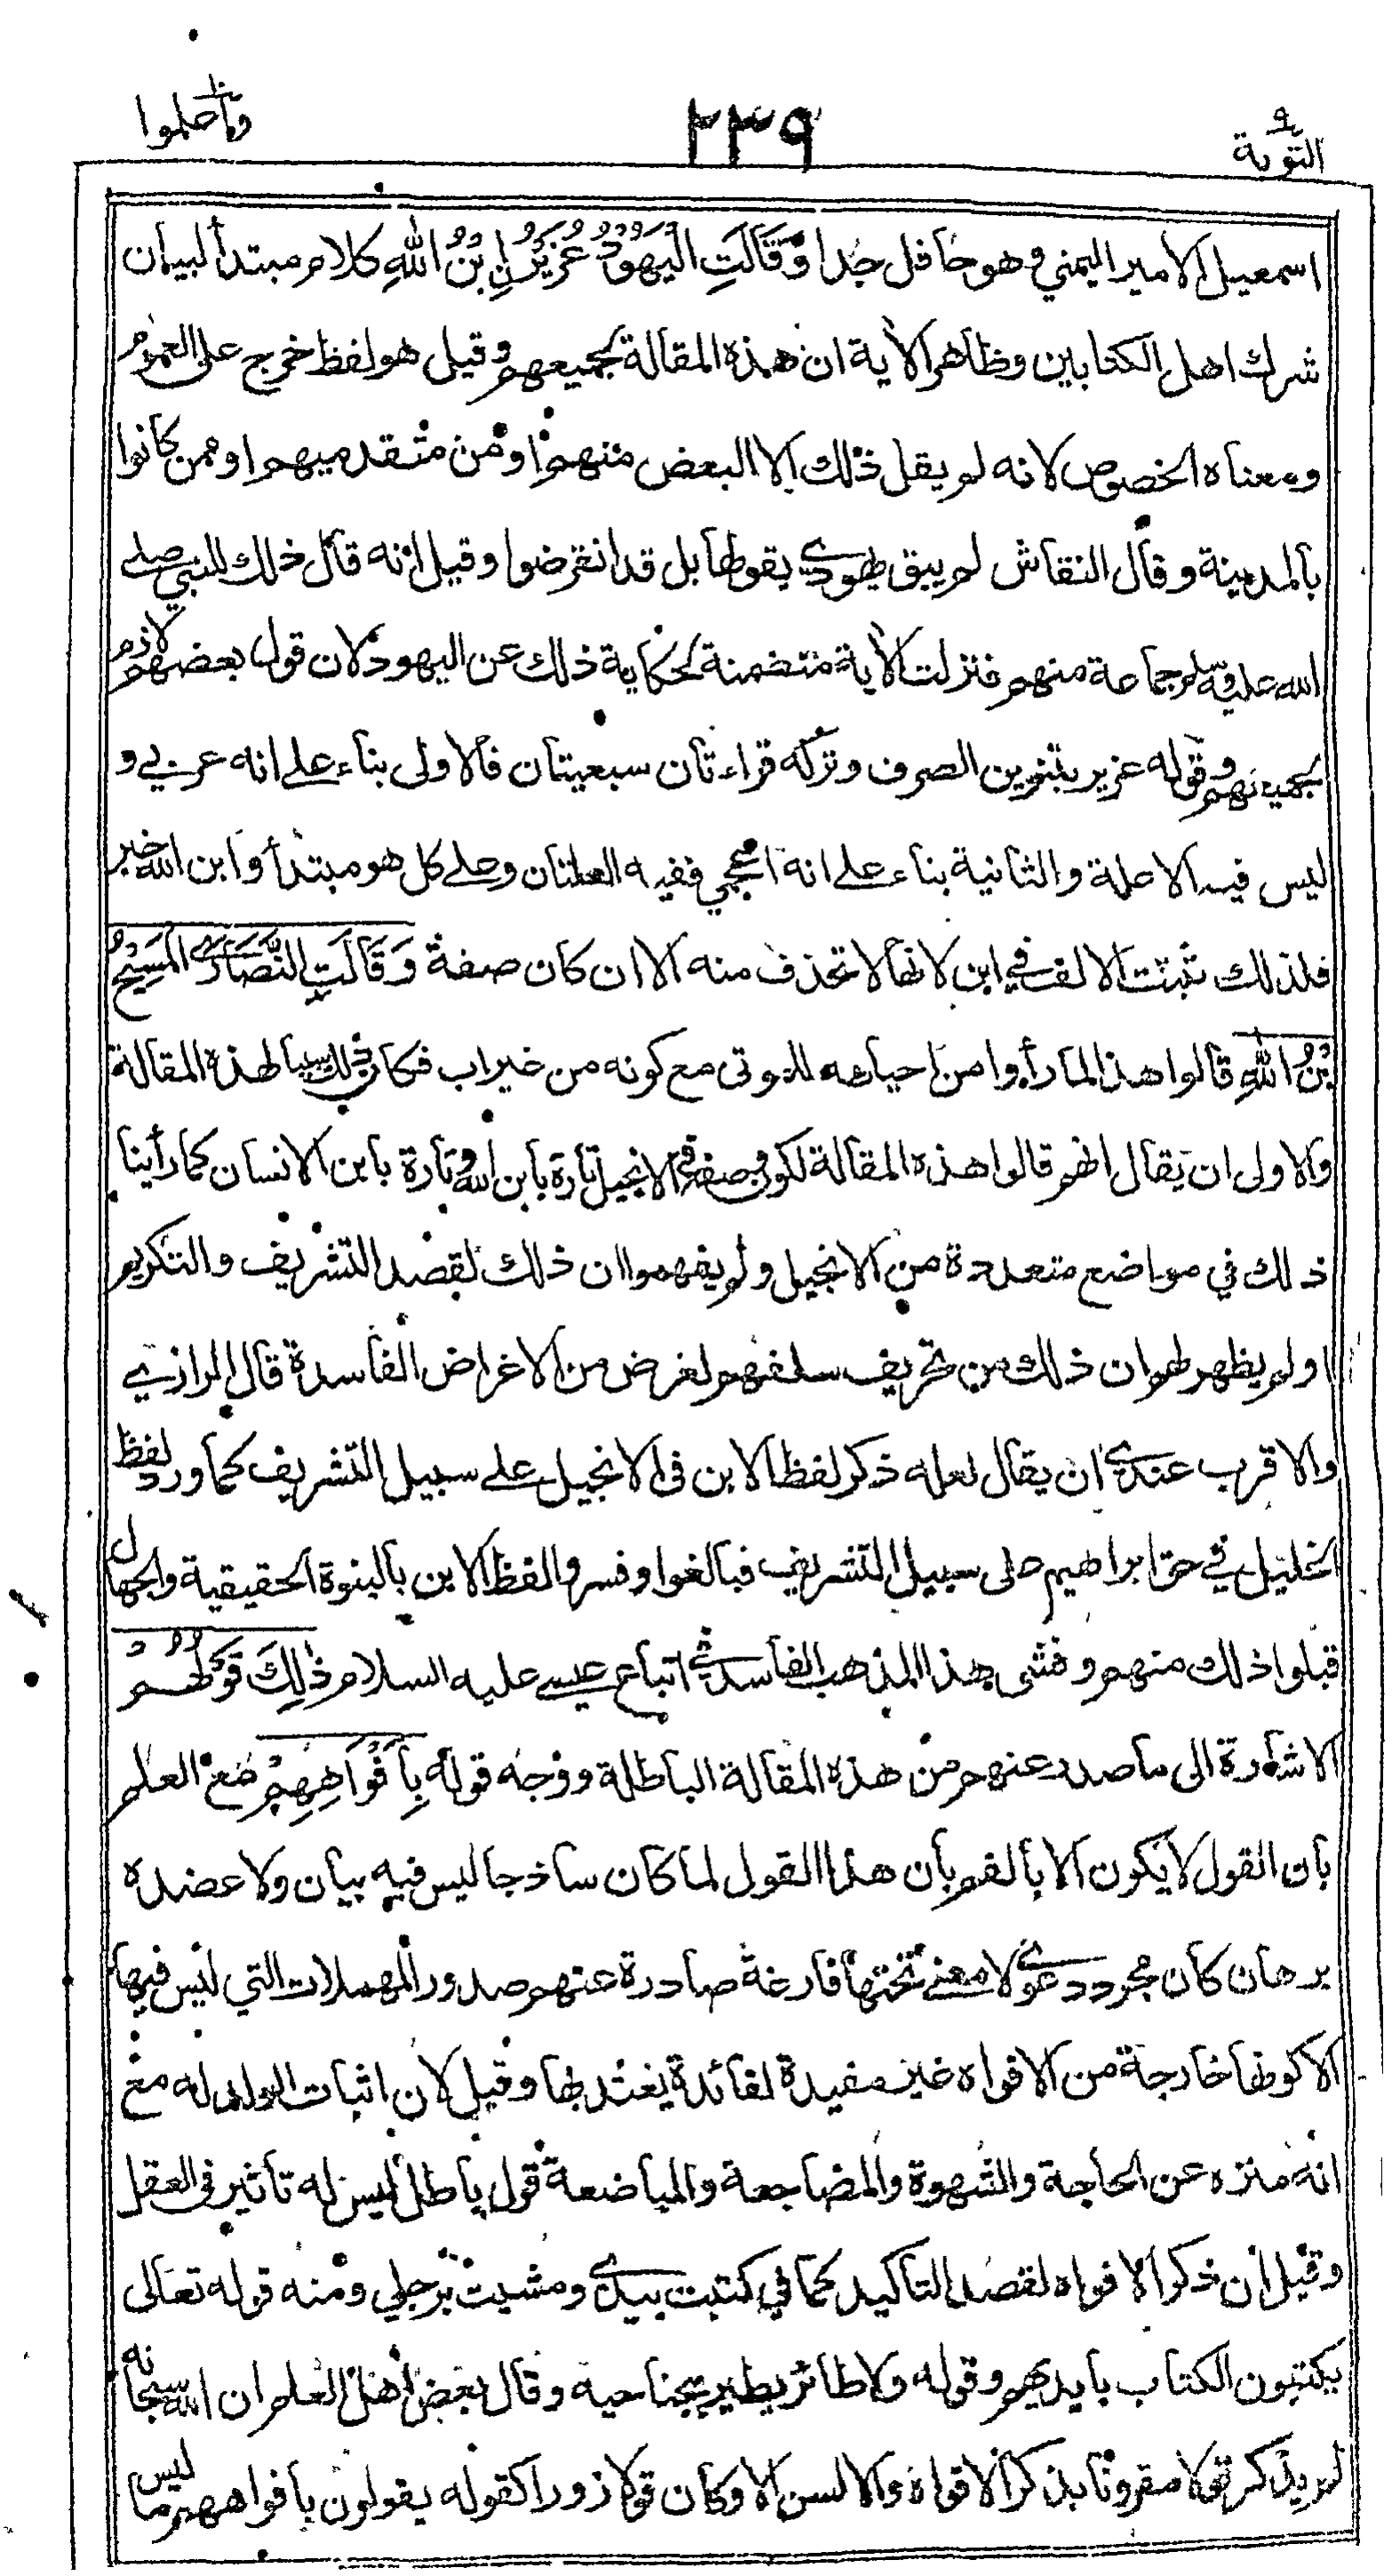 التوبة ٩
٢٣٩
واعلموا ١٠
اسمعيل الامير اليمني وهو حافل جدا وَقَالَتِ الْيَهُوْدُ عُزَيْرُ نِ ابْنُ اللهِ كلام مبتدأ لبيان
شرك اهل الكتابين وظاهر الأية ان هذه المقالة لجميعهم وقيل هو لفظ خرج على العموم
ومعناه الخصوص لانه لم يقل ذلك الا البعض منهم او من متقدميهم او ممن كانوا
بالمدينة وقال النقاش لم يبق يهودي يقولها بل قد انقرضوا وقيل انه قال ذلك للنبي صلى
الله عليه وسلم جماعة منهم فنزلت الأية متضمنة لحكاية ذلك عن اليهود لان قول بعضهم لازم
لجميعهم وقوله عزير بتنوين الصرف وتركه قراءتان سبعيتان فالاولى بناء على انه عربي و
ليس فيه الا علة والثانية بناء على انه اعجمي ففيه العلتان وعلى كل هو مبتدأ وابن الله خبر
فلذلك ثبتت الالف في ابن لانها لا تحذف منه الا ان كان صفة وَقَالَتِ النَّصَارَى الْمَسِيْحُ
ابْنُ اللهِ قالوا هذا لما رأوا من احيائه للموتى مع كونه من غير اب فكان ذلك سببا لهذه المقالة
والاولى ان يقال انهم قالوا هذه المقالة لكون وصفه في الانجيل تارة بابن الله وتارة بابن الانسان كما رأينا
ذلك في مواضع متعددة من الانجيل ولم يفهموا ان ذلك لقصد التشريف والتكريم
او لم يظهر لهم ان ذلك من تحريف سلفهم لغرض من الاغراض الفاسدة قال الرازي
والاقرب عندي ان يقال لعله ذكر لفظ الابن في الانجيل على سبيل التشريف كما ورد لفظ
الخليل في حق ابراهيم على سبيل التشريف فبالغوا وفسروا لفظ الابن بالبنوة الحقيقية والجهال
قبلوا ذلك منهم وفشى هذا المذهب الفاسد في اتباع عيسى عليه السلام ذٰلِكَ قَوْلُهُمْ
الاشارة الى ما صدر عنهم من هذه المقالة الباطلة ووجه قوله بِأَفْوَاهِهِمْ مع العلم
بان القول لا يكون الا بالفم بأن هذا القول لما كان ساذجا ليس فيه بيان ولا عضده
برهان كان مجرد دعوى لا معنى تحتها فارغة صادرة عنهم صدور المهملات التي ليس فيها
الا كونها خارجة من الافواه غير مفيدة لفائدة يعتد بها وقيل لان اثبات الولد له مع
انه منزه عن الحاجة والشهوة والمضاجعة والمباضعة قول باطل ليس له تأثير في العقل
وقيل ان ذكر الافواه لقصد التأكيد كما في كتبت بيدي ومشيت برجلي ومنه قوله تعالى
يكتبون الكتاب بايديهم وقوله ولا طائر يطير بجناحيه وقال بعض اهل العلم ان الله سبحانه
لم يذكر قولا مقرونا بذكر الافواه والالسن الا وكان قولا زورا كقوله يقولون بافواههم ما ليس